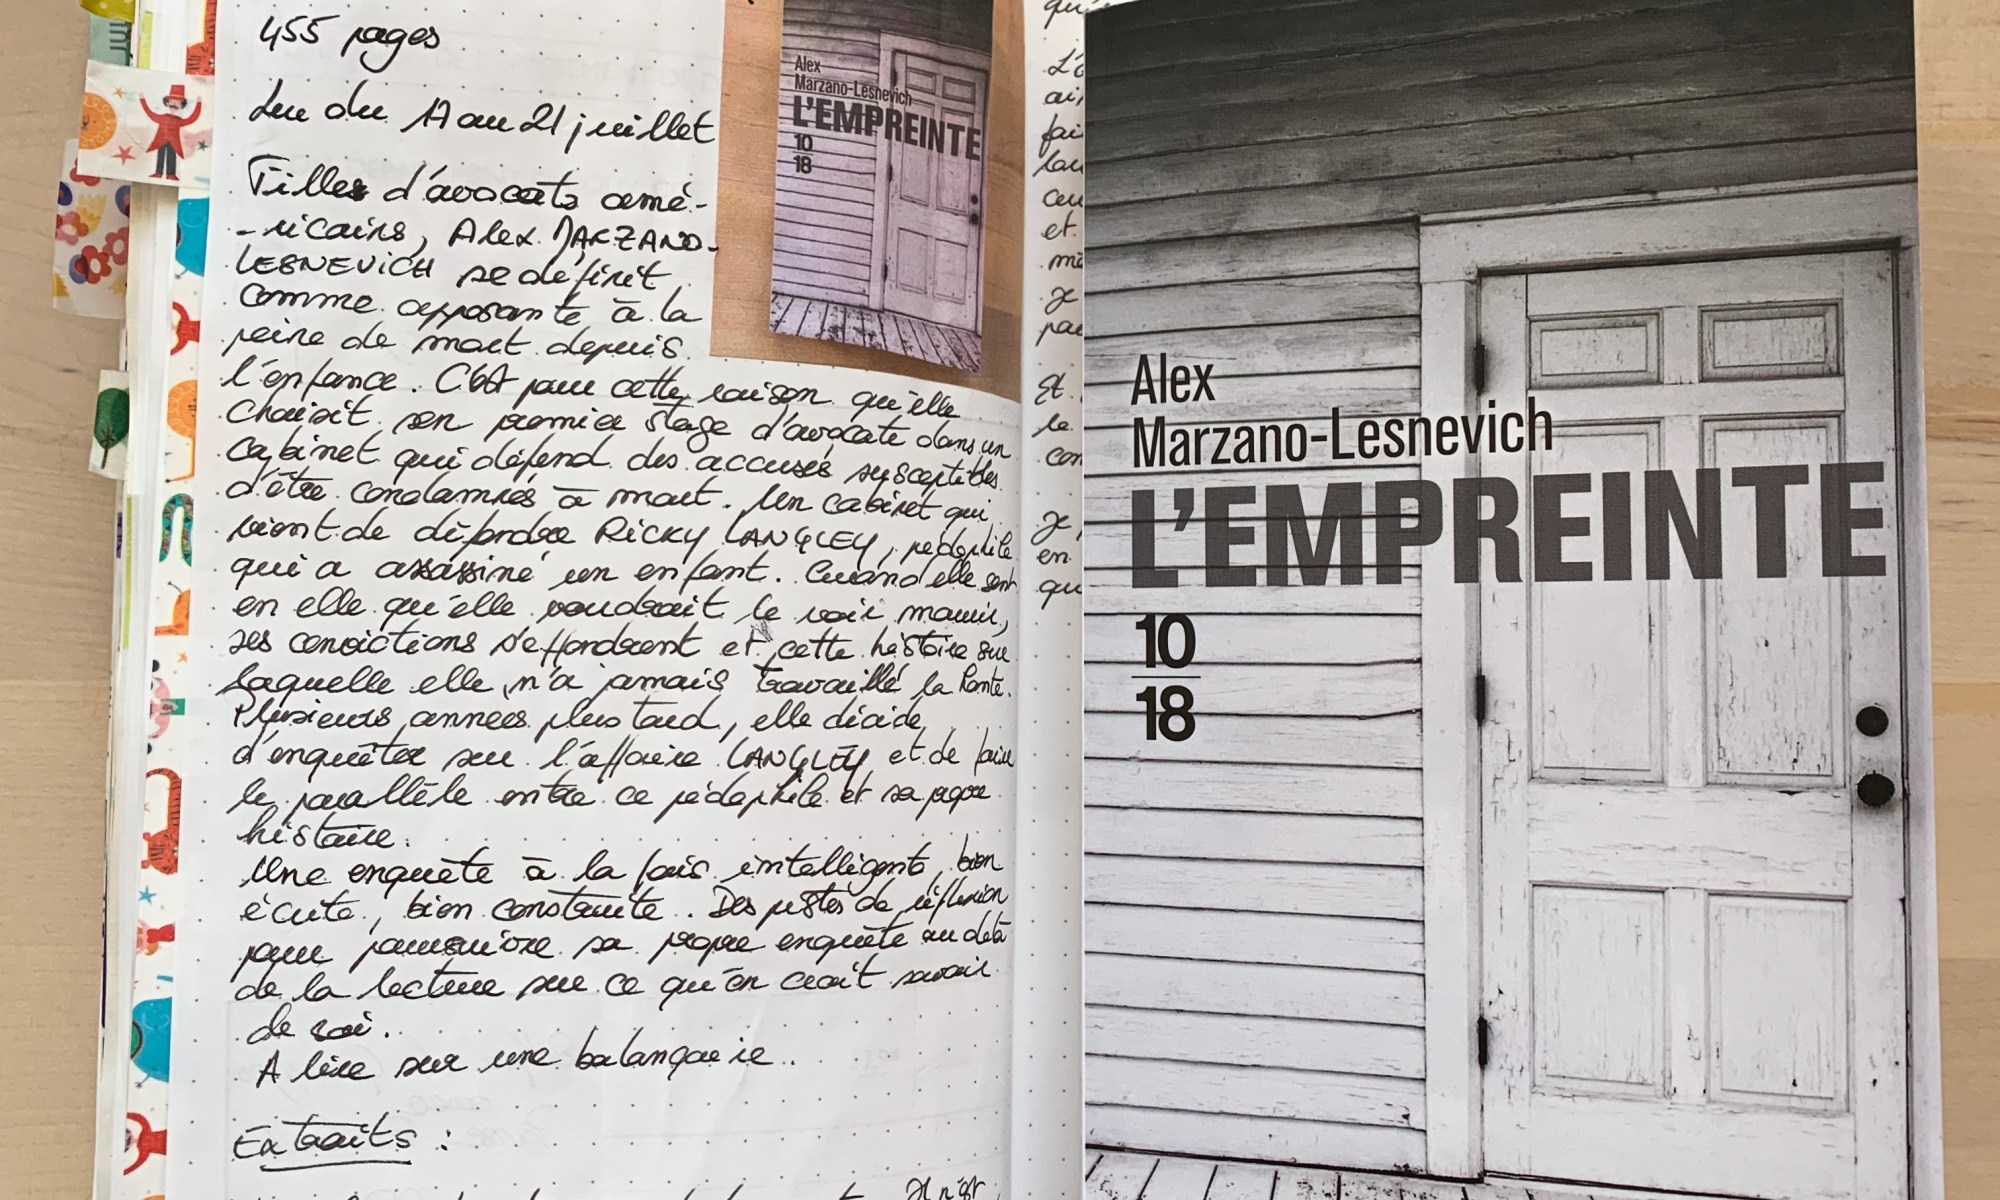 455 pages
Lu du 17 au 21 juillet
Filles d'avocats amé-
-ricains, Alex MARZANO-
LESNEVICH se définit
comme opposante à la
peine de mort depuis
l'enfance. C'est pour cette raison qu'elle
choisit son premier stage d'avocate dans un
cabinet qui défend des accusés susceptibles
d'être condamnés à mort. Un cabinet qui
vient de défendre RICKY LANGLEY, pédophile
qui a assassiné un enfant. Quand elle sent
en elle qu'elle voudrait le voir mourir,
ses convictions s'effondrent et cette histoire sur
laquelle elle n'a jamais travaillé la hante.
Plusieurs années plus tard, elle décide
d'enquêter sur l'affaire LANGLEY et de faire
le parallèle entre ce pédophile et sa propre
histoire.
Une enquête à la fois intelligente, bien
écrite, bien construite. Des pistes de réflexion
pour poursuivre sa propre enquête au delà
de la lecture sur ce qu'on croit savoir
de soi.
A lire sur une balançoire.
Extraits :
Alex
Marzano-Lesnevich
L'EMPREINTE
10
18
et
je
Et
le
Je
en
Alex
Marzano-Lesnevich
L'EMPREINTE
10
18